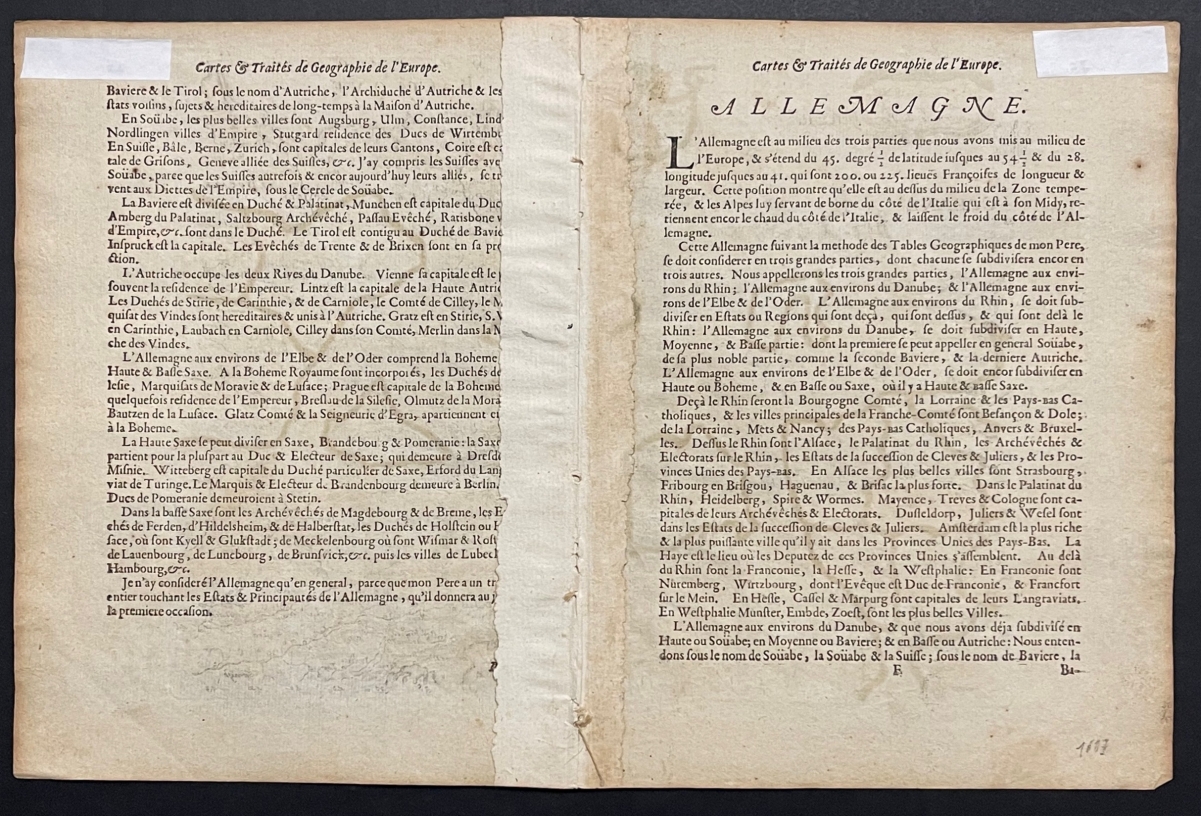 Cartes & Traités de Geographie de l'Europe.
Baviere & le Tirol; ſous le nom d'Autriche, l'Archiduché d'Autriche & les
ſtats voiſins, ſujets & hereditaires de long-temps à la Maiſon d'Autriche.
En Soüabe, les plus belles villes ſont Augsburg, Ulm, Conſtance, Lind
Nordlingen villes d'Empire, Stutgard reſidence des Ducs de Wirtemb
En Suiſſe, Bâle, Berne, Zurich, ſont capitales de leurs Cantons, Coire eſt c
tale de Griſons, Geneve alliée des Suiſſes, &c. J'ay compris les Suiſſes ave
Soüabe, parce que les Suiſſes autrefois & encor aujourd'huy leurs alliés, ſe tr
vent aux Diettes de l'Empire, ſous le Cercle de Soüabe.
La Baviere eſt diviſée en Duché & Palatinat, Munchen eſt capitale du Duc
Amberg du Palatinat, Saltzbourg Archévêché, Paſſau Evêché, Ratisbone v
d'Empire, &c. ſont dans le Duché. Le Tirol eſt contigu au Duché de Bavie
Inſpruck eſt la capitale. Les Evêchés de Trente & de Brixen ſont en ſa pr
ction.
L'Autriche occupe les deux Rives du Danube. Vienne ſa capitale eſt le
ſouvent la reſidence de l'Empereur. Lintz eſt la capitale de la Haute Autri
Les Duchés de Stirie, de Carinthie, & de Carniole, le Comté de Cilley, le M
quiſat des Vindes ſont hereditaires & unis à l'Autriche. Gratz eſt en Stirie, S. V
en Carinthie, Laubach en Carniole, Cilley dans ſon Comté, Merlin dans la M
che des Vindes.
L'Allemagne aux environs de l'Elbe & de l'Oder comprend la Boheme
Haute & Baſſe Saxe. A la Boheme Royaume ſont incorporés, les Duchés de
leſie, Marquiſats de Moravie & de Luſace; Prague eſt capitale de la Boheme
quelquefois reſidence de l'Empereur, Breſlau de la Sileſie, Olmutz de la Mora
Bautzen de la Luſace. Glatz Comté & la Seigneurie d'Egra, apartiennent e
à la Boheme.
La Haute Saxe ſe peut diviſer en Saxe, Brandebourg & Pomeranie: la Saxe
partient pour la pluſpart au Duc & Electeur de Saxe; qui demeure à Dreſde
Miſnie. Witteberg eſt capitale du Duché particulier de Saxe, Erford du Lan
viat de Turinge. Le Marquis & Electeur de Brandenbourg demeure à Berlin.
Ducs de Pomeranie demeuroient à Stetin.
Dans la baſſe Saxe ſont les Archévêchés de Magdebourg & de Breme, les E
chés de Ferden, d'Hildelsheim, & de Halberſtat, les Duchés de Holſtein ou H
face, où ſont Kyell & Glukſtadt; de Meckelenbourg où ſont Wiſmar & Roſt
de Lauenbourg, de Lunebourg, de Brunſvick, &c. puis les villes de Lubeck
Hambourg, &c.
Je n'ay conſideré l'Allemagne qu'en general, parce que mon Pere a un tr
entier touchant les Eſtats & Principautés de l'Allemagne, qu'il donnera au
la premiere occaſion.
Cartes & Traités de Geographie de l'Europe.
ALLEMAGNE.
L'Allemagne eſt au milieu des trois parties que nous avons mis au milieu de
l'Europe, & s'étend du 45. degré ½ de latitude iuſques au 54 ½ & du 28.
longitude juſques au 41. qui ſont 200. ou 225. lieues Françoiſes de longueur &
largeur. Cette poſition montre qu'elle eſt au deſſus du milieu de la Zone tempe-
rée, & les Alpes luy ſervant de borne du côté de l'Italie qui eſt à ſon Midy, re-
tiennent encor le chaud du côté de l'Italie, & laiſſent le froid du côté de l'Al-
lemagne.
Cette Allemagne ſuivant la methode des Tables Geographiques de mon Pere,
ſe doit conſiderer en trois grandes parties, dont chacune ſe ſubdiviſera encor en
trois autres. Nous appellerons les trois grandes parties, l'Allemagne aux envi-
rons du Rhin; l'Allemagne aux environs du Danube; & l'Allemagne aux envi-
rons de l'Elbe & de l'Oder. L'Allemagne aux environs du Rhin, ſe doit ſub-
diviſer en Eſtats ou Regions qui ſont deçà, qui ſont deſſus, & qui ſont delà le
Rhin: l'Allemagne aux environs du Danube, ſe doit ſubdiviſer en Haute,
Moyenne, & Baſſe partie: dont la premiere ſe peut appeller en general Soüabe,
de ſa plus noble partie, comme la ſeconde Baviere, & la derniere Autriche.
L'Allemagne aux environs de l'Elbe & de l'Oder, ſe doit encor ſubdiviſer en
Haute ou Boheme, & en Baſſe ou Saxe, où il y a Haute & Baſſe Saxe.
Deçà le Rhin ſeront la Bourgogne Comté, la Lorraine & les Pays-Bas Ca-
tholiques, & les villes principales de la Franche-Comté ſont Beſançon & Dole;
de la Lorraine, Mets & Nancy; des Pays-Bas Catholiques, Anvers & Bruxel-
les. Deſſus le Rhin ſont l'Alſace, le Palatinat du Rhin, les Archévêchés &
Electorats ſur le Rhin, les Eſtats de la ſucceſſion de Cleves & Juliers, & les Pro-
vinces Unies des Pays-Bas. En Alſace les plus belles villes ſont Strasbourg,
Fribourg en Briſgou, Haguenau, & Briſac la plus forte. Dans le Palatinat du
Rhin, Heidelberg, Spire & Wormes. Mayence, Treves & Cologne ſont ca-
pitales de leurs Archévêchés & Electorats. Duſſeldorp, Juliers & Weſel ſont
dans les Eſtats de la ſucceſſion de Cleves & Juliers. Amſterdam eſt la plus riche
& la plus puiſſante ville qu'il y ait dans les Provinces Unies des Pays-Bas. La
Haye eſt le lieu où les Deputez de ces Provinces Unies s'aſſemblent. Au delà
du Rhin ſont la Franconie, la Heſſe, & la Weſtphalie: En Franconie ſont
Nüremberg, Wirtzbourg, dont l'Evêque eſt Duc de Franconie, & Francfort
ſur le Mein. En Heſſe, Caſſel & Marpurg ſont capitales de leurs Langraviats.
En Weſtphalie Munſter, Embde, Zoeſt, ſont les plus belles Villes.
L'Allemagne aux environs du Danube, & que nous avons déja ſubdiviſé en
Haute ou Soüabe; en Moyenne ou Baviere; & en Baſſe ou Autriche: Nous enten-
dons ſous le nom de Soüabe, la Soüabe & la Suiſſe; ſous le nom de Baviere, la
E Ba-